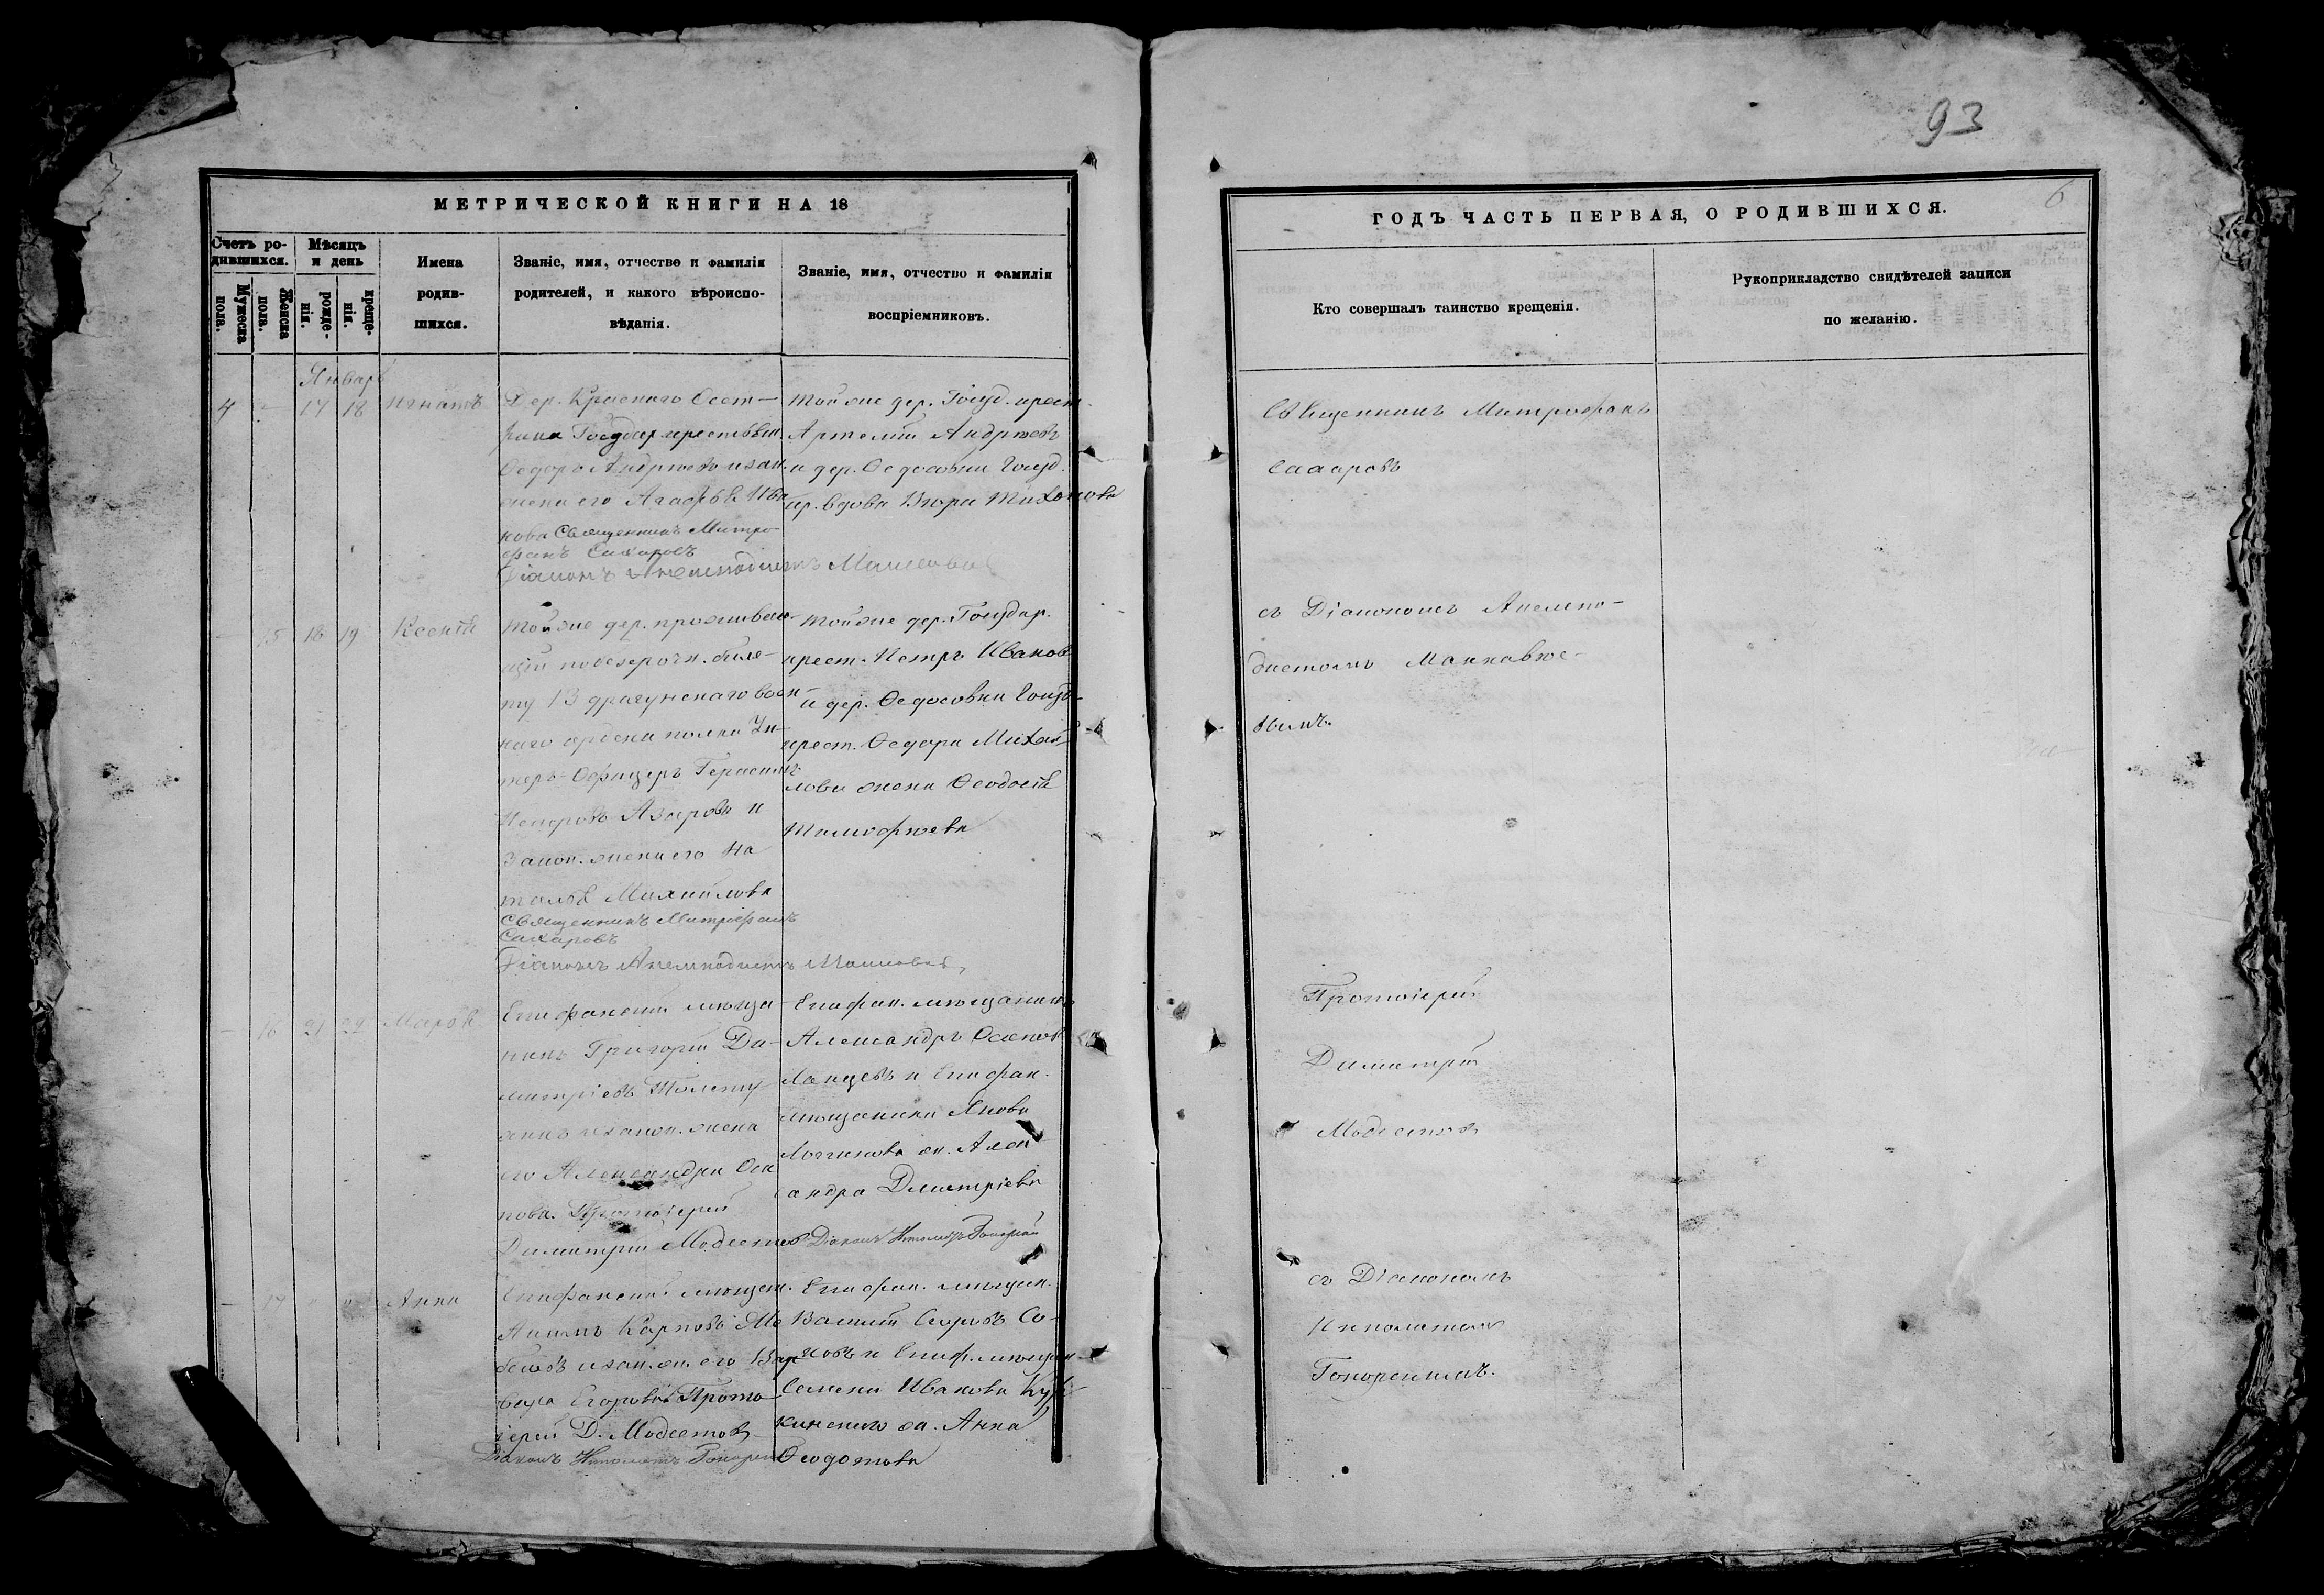 93
6
МЕТРИЧЕСКОЙ КНИГИ НА 18
Счетъ ро-
дившихся.
Мужеска
пола.
Женска
пола.
Мѣсяцъ
и день
рожде-
нія.
креще-
нія.
Имена
родив-
шихся.
Званіе, имя, отчество и фамилія
родителей, и какого вѣроиспо-
вѣданія.
Званіе, имя, отчество и фамилія
воспріемниковъ.
ГОДЪ ЧАСТЬ ПЕРВАЯ, О РОДИВШИХСЯ.
Кто совершалъ таинство крещенія.
Рукоприкладство свидѣтелей записи
по желанію.
Январь
4 - 17 18 Игнатъ
Дер. Краснаго Осет-
Ѳедоръ Андреевъ и зак.
жена его Агафья Ива
нова Священникъ Митро-
фанъ Сахаровъ
Діаконъ Анемподистъ
Той же дер. Госуд. крест.
Артемій Андреевъ
и дер. Ѳедосовки Госуд.
кр. вдова Вѣра Тихонова
Священникъ Митрофанъ
Сахаровъ
- 15 18 19 Ксенія
Той же дер. проживаю-
щій по безсрочн. биле-
ту 13 драгунскаго воен-
наго ордена полка Ун-
теръ-Офицеръ Герасимъ
Азарова и
Закон. жена его На
талья Михайлова
Священникъ Митрофанъ
Сахаровъ
Діаконъ Анемподистъ
Той же дер. Государ.
крест. Петръ Ивановъ
и дер. Ѳедосовки Госуд-
крест. Ѳедора Михай-
лова жена Ѳеодосія
Тимофѣева
съ Діакономъ Анемпо-
дистомъ
вымъ.
- 16 21 22 Марѳа
Епифанскій мѣща-
нинъ Григорій Ди-
митріевъ
и закон. жена
его Александра Оси
пова. Протоіерей
Димитрій Модестовъ
Епифан. мѣщанинъ
Александръ Осиповъ
и Епифан.
мѣщанина Якова
Логинова ж. Алек
андра Димитріева
Діаконъ Ипполитъ Гонорскій
Протоіерей
Димитрій
Модестовъ
- 17 " " Анна
Епифанскій мѣщан.
Карповъ Ме
и зак. ж. его Вар
вара Егорова Прото
іерей Д. Модестовъ
Діаконъ Ипполитъ
Епифан. мѣщан.
Василій Егоровъ Со-
и Епиф. мѣщан-
Семена Иванова
ж. Анна
Ѳеодотова
съ Діакономъ
Ипполитомъ
Гонорскимъ.